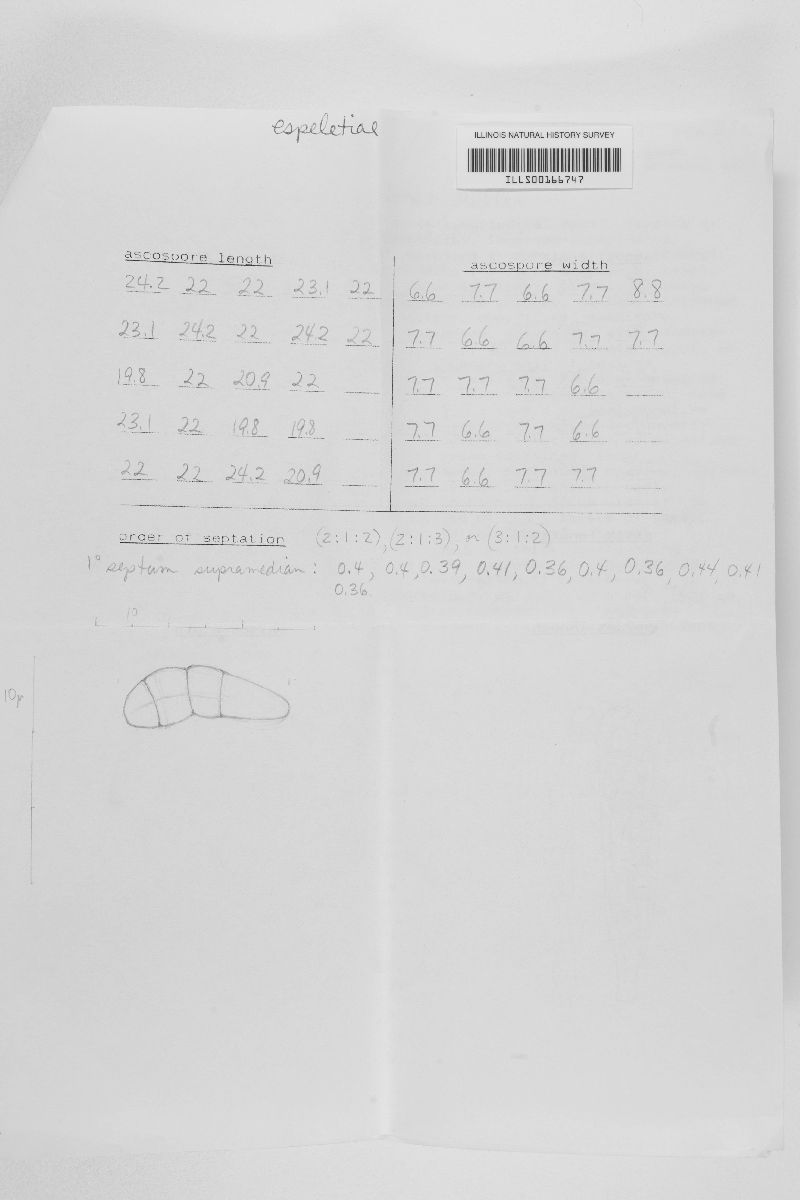 espeletiae
ILLINOIS NATURAL HISTORY SURVEY
ILLS00166747
ascospore length
24.2 22 22 23.1 22
23.1 24.2 22 24.2 22
19.8 22 20.9 22
23.1 22 19.8 19.8
22 22 24.2 20.9
ascospore width
6.6 7.7 6.6 7.7 8.8
7.7 6.6 6.6 7.7 7.7
7.7 7.7 7.7 6.6
7.7 6.6 7.7 6.6
7.7 6.6 7.7 7.7
order of septation (2:1:2), (2:1:3), or (3:1:2)
1° septum supramedian: 0.4, 0.4, 0.39, 0.41, 0.36, 0.4, 0.36, 0.44, 0.41
0.36
10
10µ